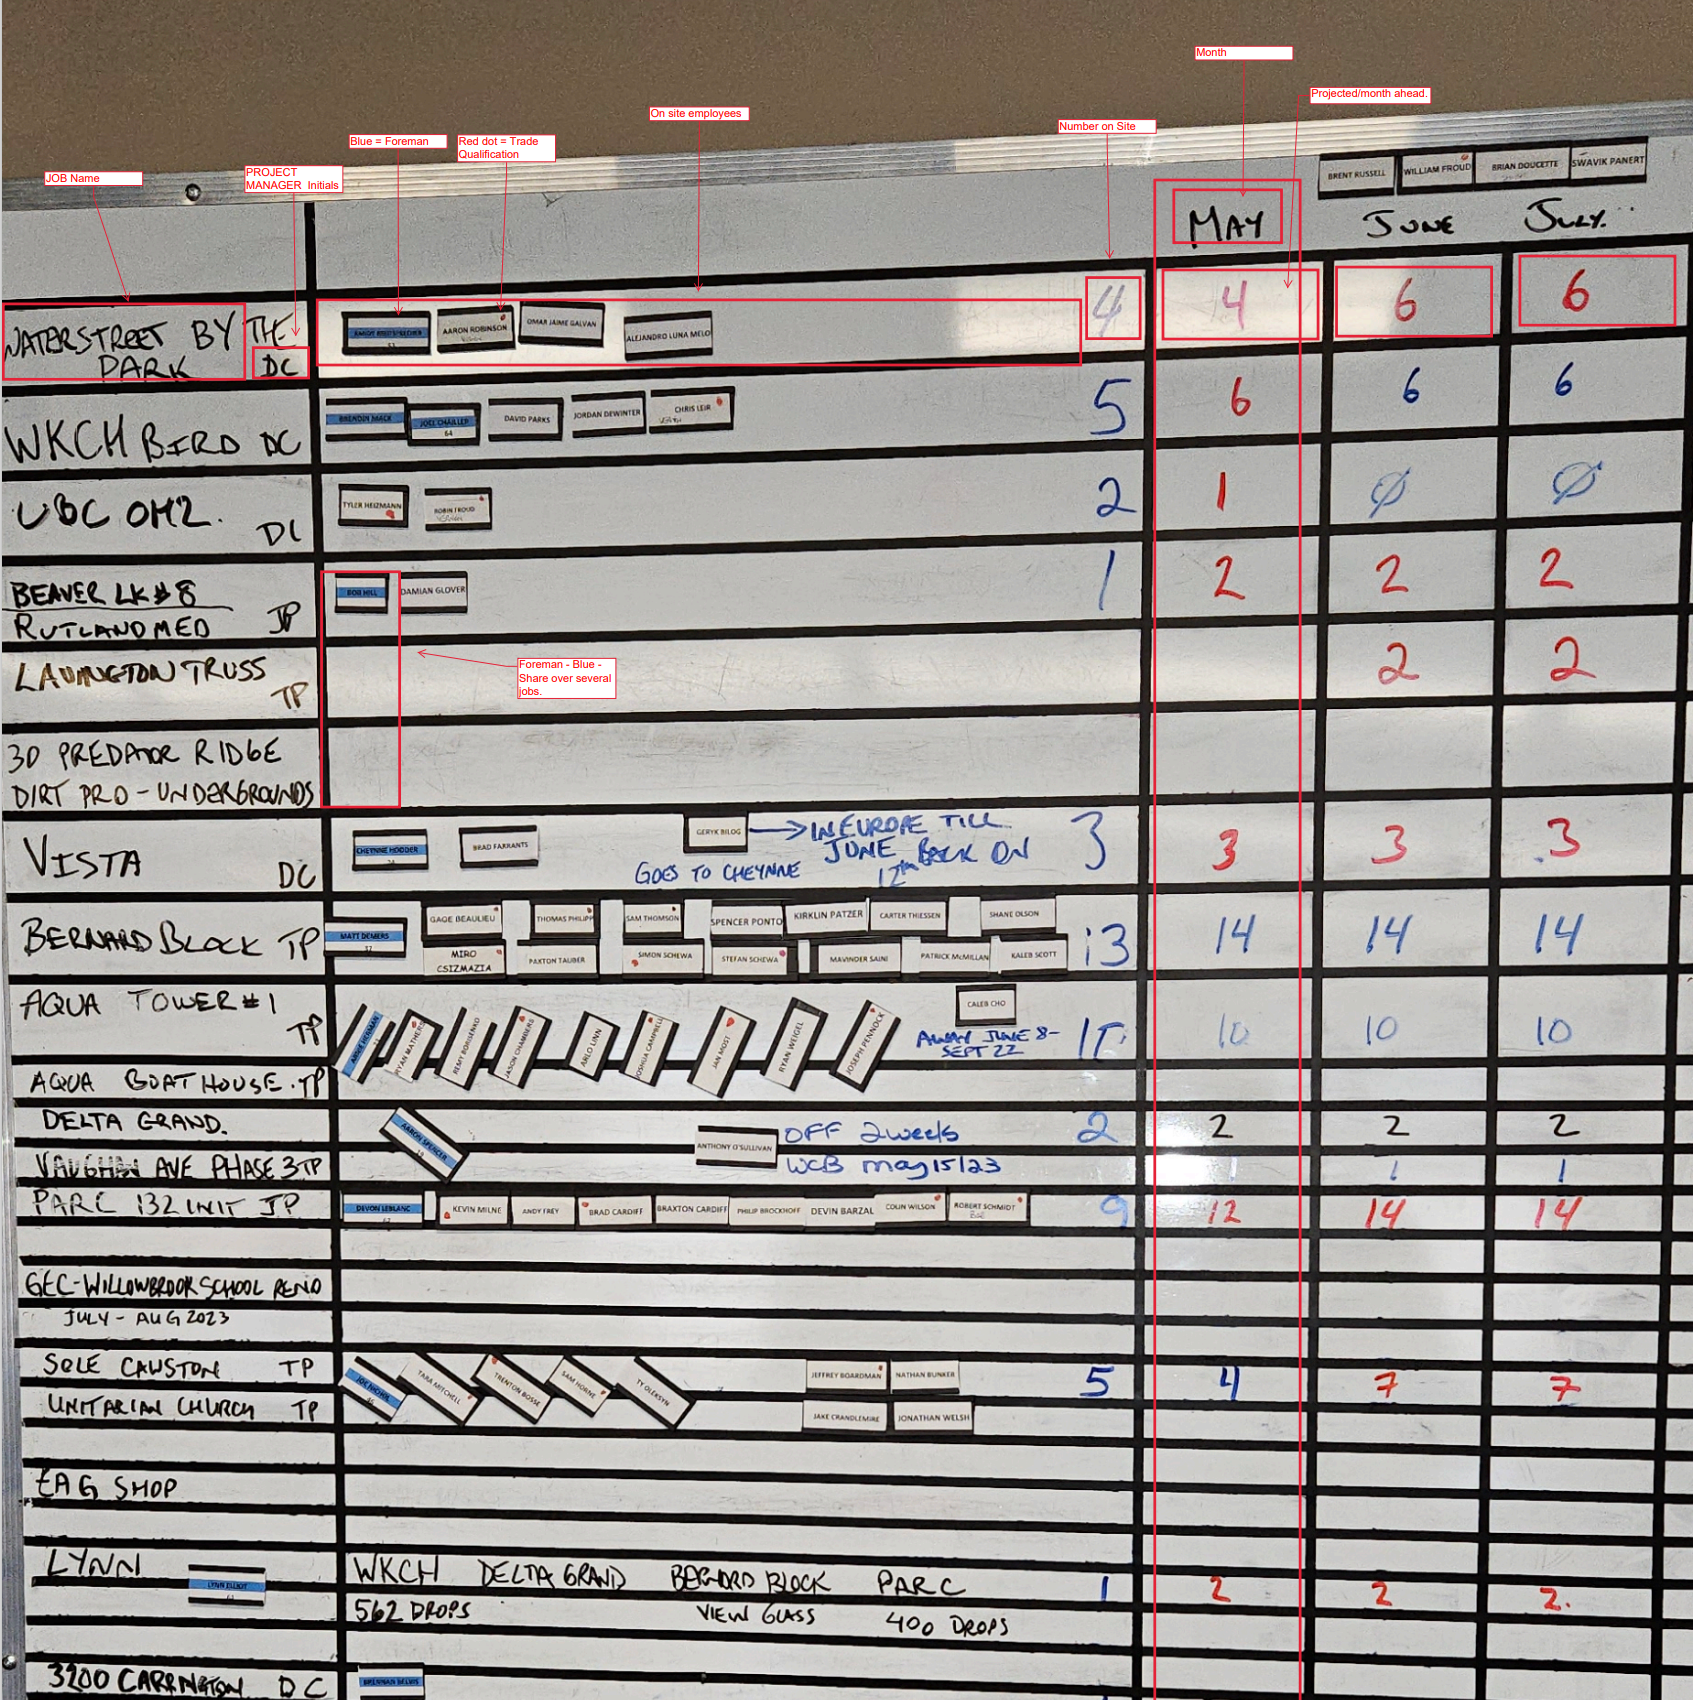 Month
Projected/month ahead.
On site employees
Number on Site
Blue = Foreman
Red dot = Trade
Qualification
PROJECT
MANAGER Initials
JOB Name
BRENT RUSSELL WILLIAM FROUD BRIAN DOUCETTE SWAVIK PANERT
MAY JUNE JULY
WATERSTREET BY THE
PARK DC
AARON ROBINSON OMAR JAIME GALVAN ALEJANDRO LUNA MELO 4 4 6 6
WKCH BIRD DC BRENDIN MACK DAVID PARKS JORDAN DEWINTER CHRIS LEIR 5 6 6 6
64
UBC OM2. TYLER HEIZMANN ROBIN FROUD 2 1 Ø Ø
BEAVER LK #8 BOB HILL DAMIAN GLOVER 1 2 2 2
RUTLAND MED JP
LAVINGTON TRUSS TP 2 2
Foreman - Blue -
Share over several
jobs.
3D PREDATOR RIDGE
DIRT PRO - UNDERGROUNDS
VISTA DC CHEYNNE HODDER BRAD FARRANTS GERYK BILOG → IN EUROPE TILL 3 3 3 3
JUNE BACK ON
GOES TO CHEYNNE 12th
BERNARD BLOCK TP MATT DEMERS 13 14 14 14
GAGE BEAULIEU THOMAS PHILIPP SAM THOMSON SPENCER PONTO KIRKLIN PATZER CARTER THIESSEN SHANE OLSON
MIRO CSIZMAZIA PAXTON TAUBER SIMON SCHEWA STEFAN SCHEWA MAVINDER SAINI PATRICK McMILLAN KALEB SCOTT
AQUA TOWER #1 TP
RYAN MATHERS REMY BORISENKO JASON CHAMBERS ARLO LINN JOSHUA CAMPBELL JAN MOST RYAN WEIGEL JOSEPH PENNOCK CALEB CHO 10 10 10
AWAY JUNE 8-
SEPT 22
AQUA BOATHOUSE. TP
DELTA GRAND. AARON SPENCER ANTHONY O'SULLIVAN OFF 2 weeks 2 2 2 2
VAUGHAN AVE PHASE 3 TP WCB may 15/23 1 1 1
PARC 132 UNIT JP DEVON LEBLANC KEVIN MILNE ANDY FREY BRAD CARDIFF BRAXTON CARDIFF PHILIP BROCKHOFF DEVIN BARZAL COLIN WILSON ROBERT SCHMIDT 9 12 14 14
GEC-WILLOWBROOK SCHOOL RENO
JULY - AUG 2023
SOLE CAWSTON TP JOE NICHOL TARA MITCHELL TRENTON BOSSE SAM HORNE TY OLEKSYN JEFFREY BOARDMAN NATHAN BUNKER 5 4 7 7
UNITARIAN CHURCH TP JAKE CRANDLEMIRE JONATHAN WELSH
EAG SHOP
LYNN LYNN ELLIOT WKCH DELTA GRAND BERNARD BLOCK PARC 1 2 2 2.
562 DROPS VIEW GLASS 400 DROPS
3200 CARRINGTON DC